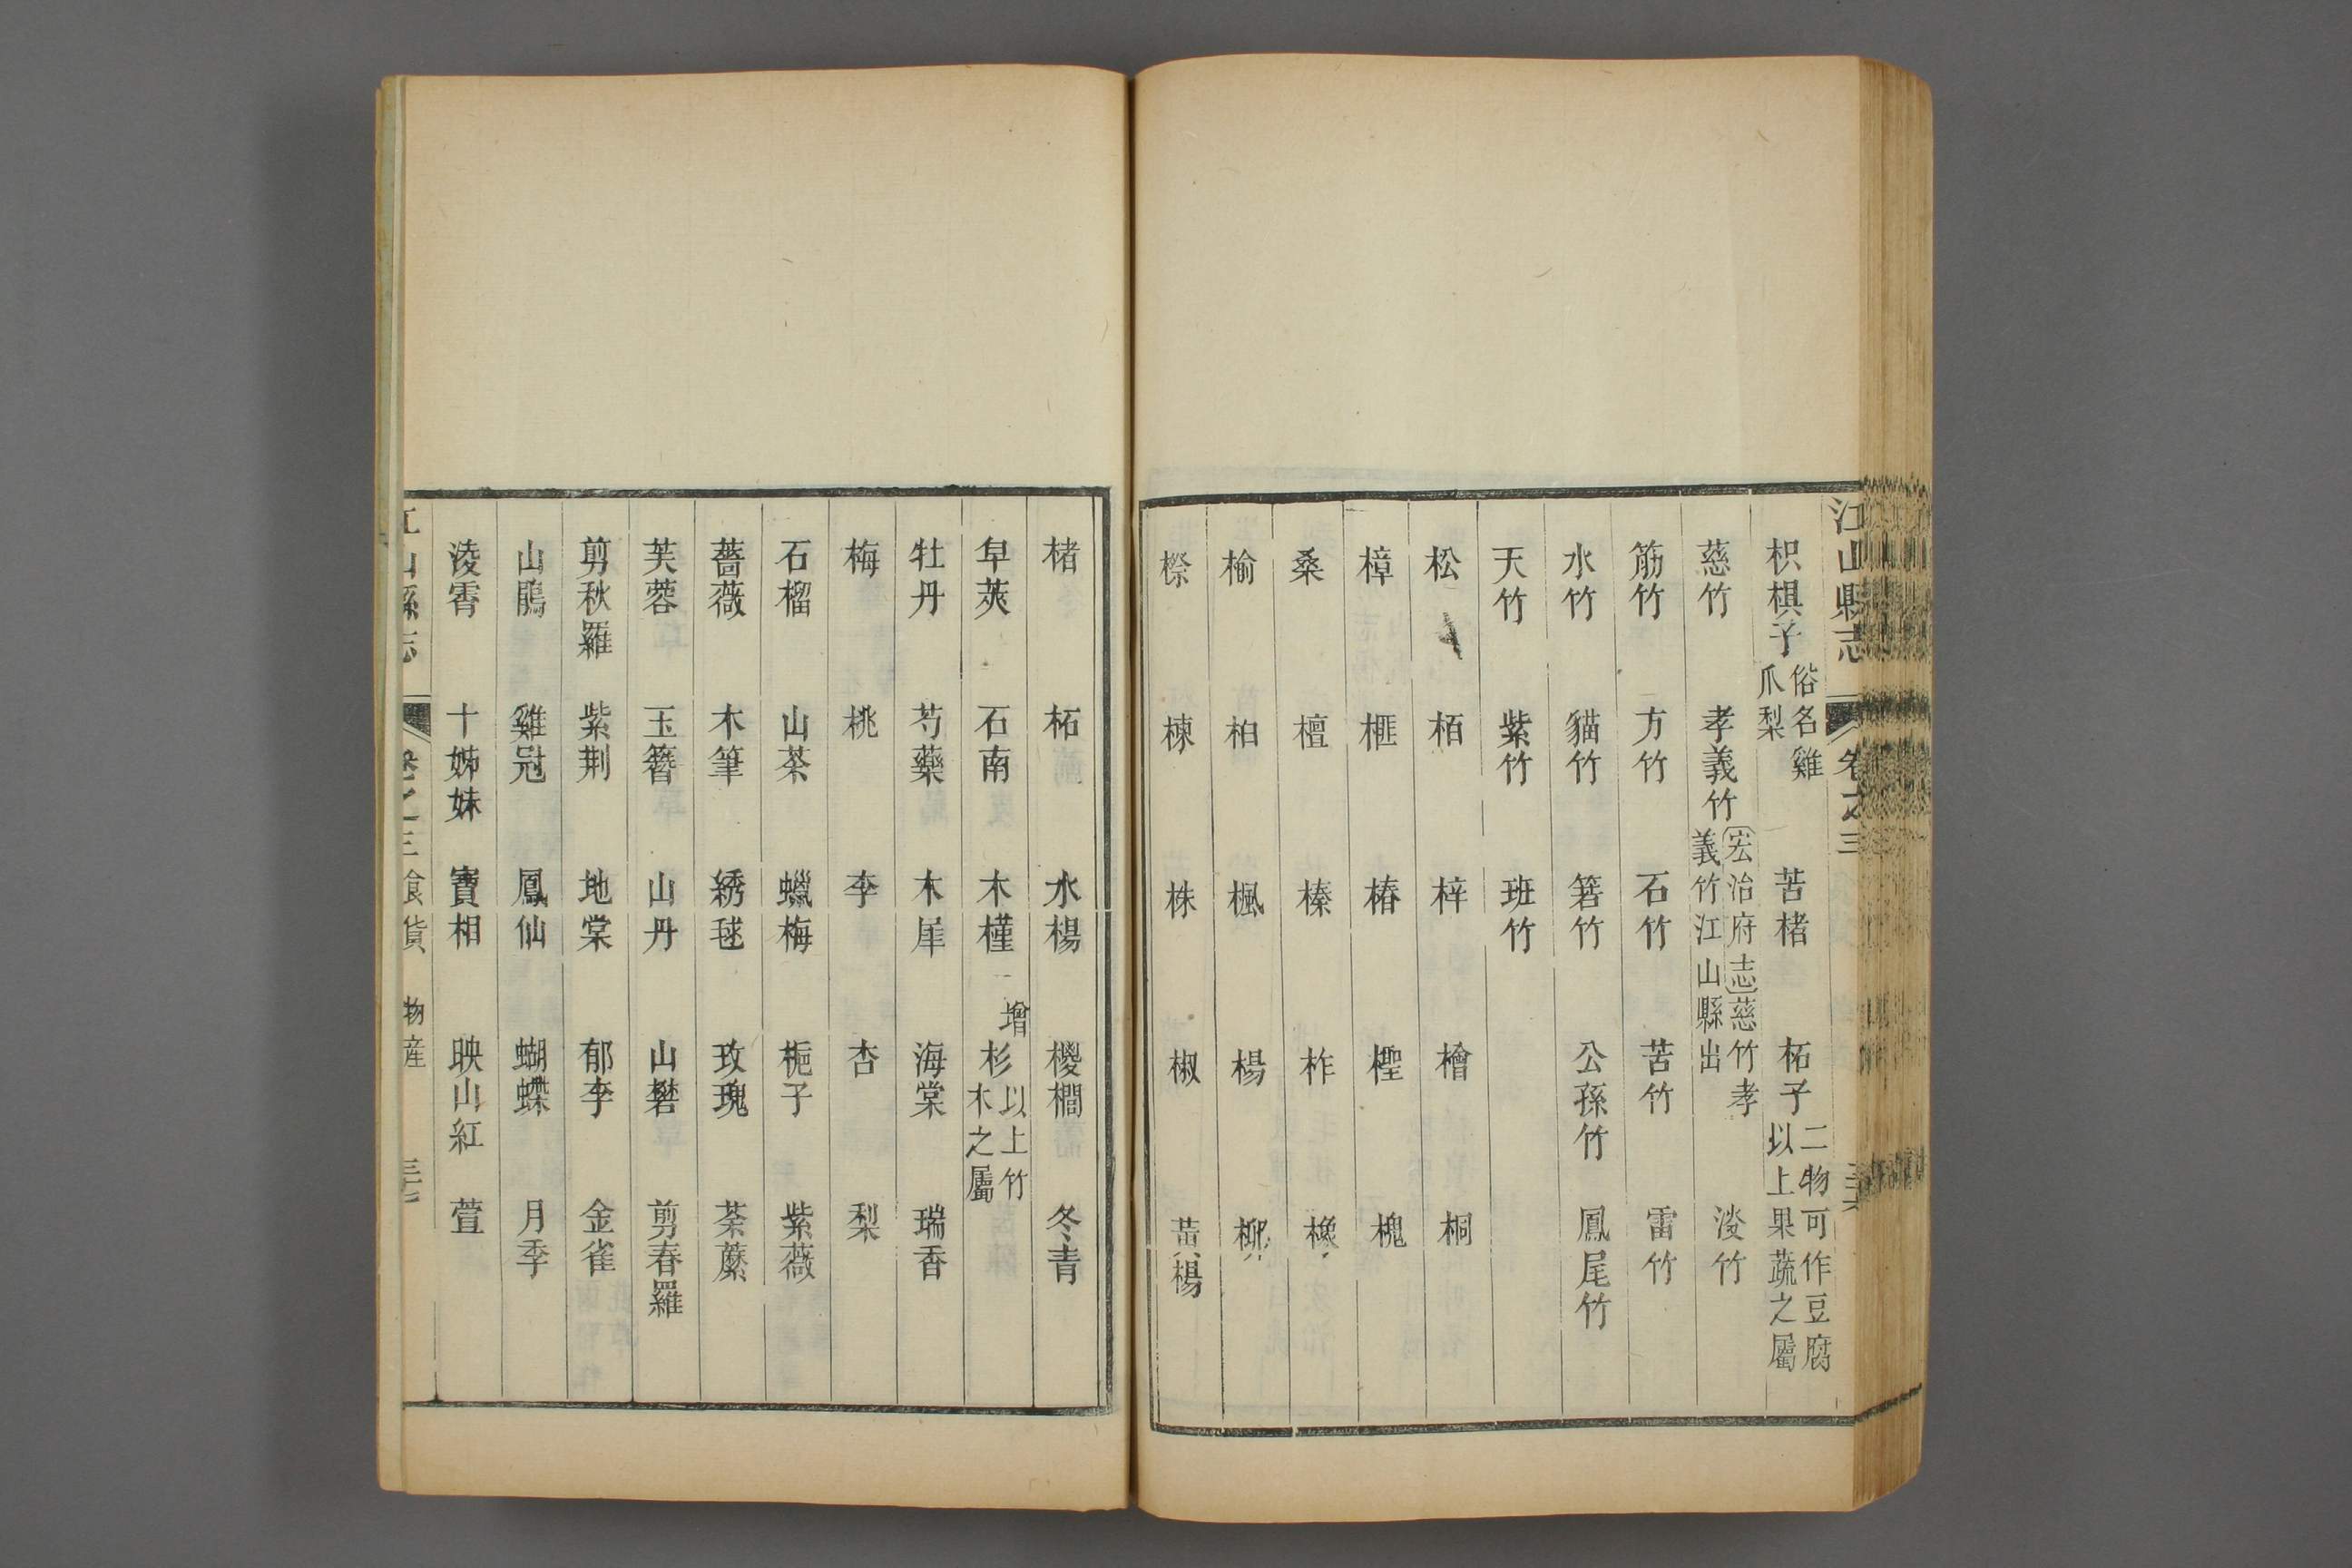 江山縣志 卷之三
枳椇子 俗名雞爪梨 苦櫧 柘子 二物可作豆腐以上果蔬之屬
慈竹 孝義竹 宏治府志慈竹孝義竹江山縣出 淡竹
筋竹 方竹 石竹 苦竹 雷竹
水竹 貓竹 箬竹 公孫竹 鳳尾竹
天竹 紫竹 班竹
松 栢 梓 檜 桐
樟 榧 椿 檉 槐
桑 檀 榛 柞 橡
榆 桕 楓 楊 柳
楝 株 椒 黃楊
楮 柘 水楊 㮨櫚 冬青
皁莢 石南 木槿 增 杉 以上竹木之屬
牡丹 芍藥 木犀 海棠 瑞香
梅 桃 李 杏 梨
石榴 山茶 蠟梅 梔子 紫薇
薔薇 木筆 綉毬 玫瑰 荼蘼
芙蓉 玉簪 山丹 山礬 剪春羅
剪秋羅 紫荆 地棠 郁李 金雀
山鵑 雞冠 鳳仙 蝴蝶 月季
淩霄 十姊妹 寶相 映山紅 萱
江山縣志 卷之三 食貨 物產 三七